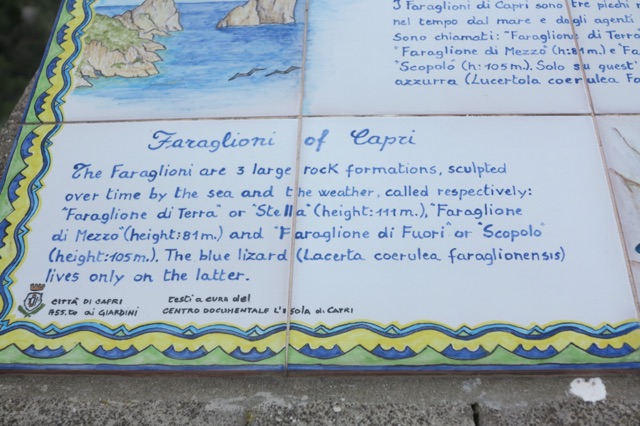 I Faraglioni di Capri sono tre piedi
nel tempo dal mare e dagli agenti
Sono chiamati: "Faraglione di Terra
"Faraglione di Mezzo" (h:81m.) e "Fa
"Scopolo" (h:105m.). Solo su quest'
azzurra (Lucertola coerulea Fa
Faraglioni of Capri
The Faraglioni are 3 large rock formations, sculpted
over time by the sea and the weather, called respectively:
"Faraglione di Terra" or "Stella" (height:111m.), "Faraglione
di Mezzo" (height:81m.) and "Faraglione di Fuori" or "Scopolo"
(height:105m.). The blue lizard (Lacerta coerulea faraglionensis)
lives only on the latter.
CITTÀ DI CAPRI
ASS.to ai GIARDINI
testi a cura del
CENTRO DOCUMENTALE L'ISOLA di CAPRI